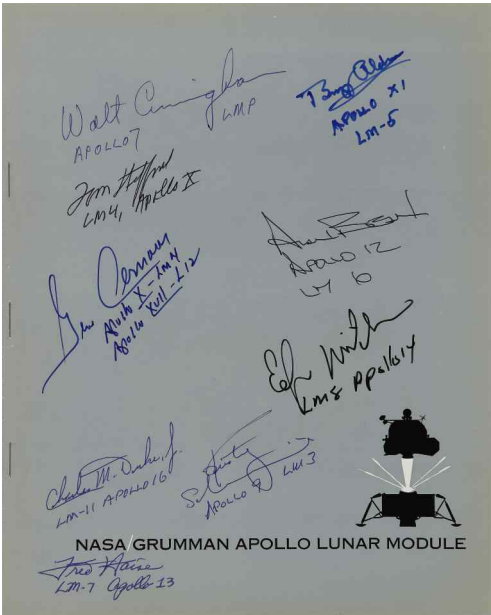 Walt Cunningham
LMP
APOLLO 7
Buzz Aldrin
APOLLO XI
LM-5
Tom Stafford
LM4, Apollo X
Alan Bean
APOLLO 12
LM 6
Gene Cernan
Apollo X-LM4
Apollo XVII-L12
Edgar Mitchell
LM8 Apollo 14
Charles M. Duke, Jr.
LM-11 APOLLO 16
Rusty
Schweickart
APOLLO 9 LM3
NASA/GRUMMAN APOLLO LUNAR MODULE
Fred Haise
LM-7 Apollo-13